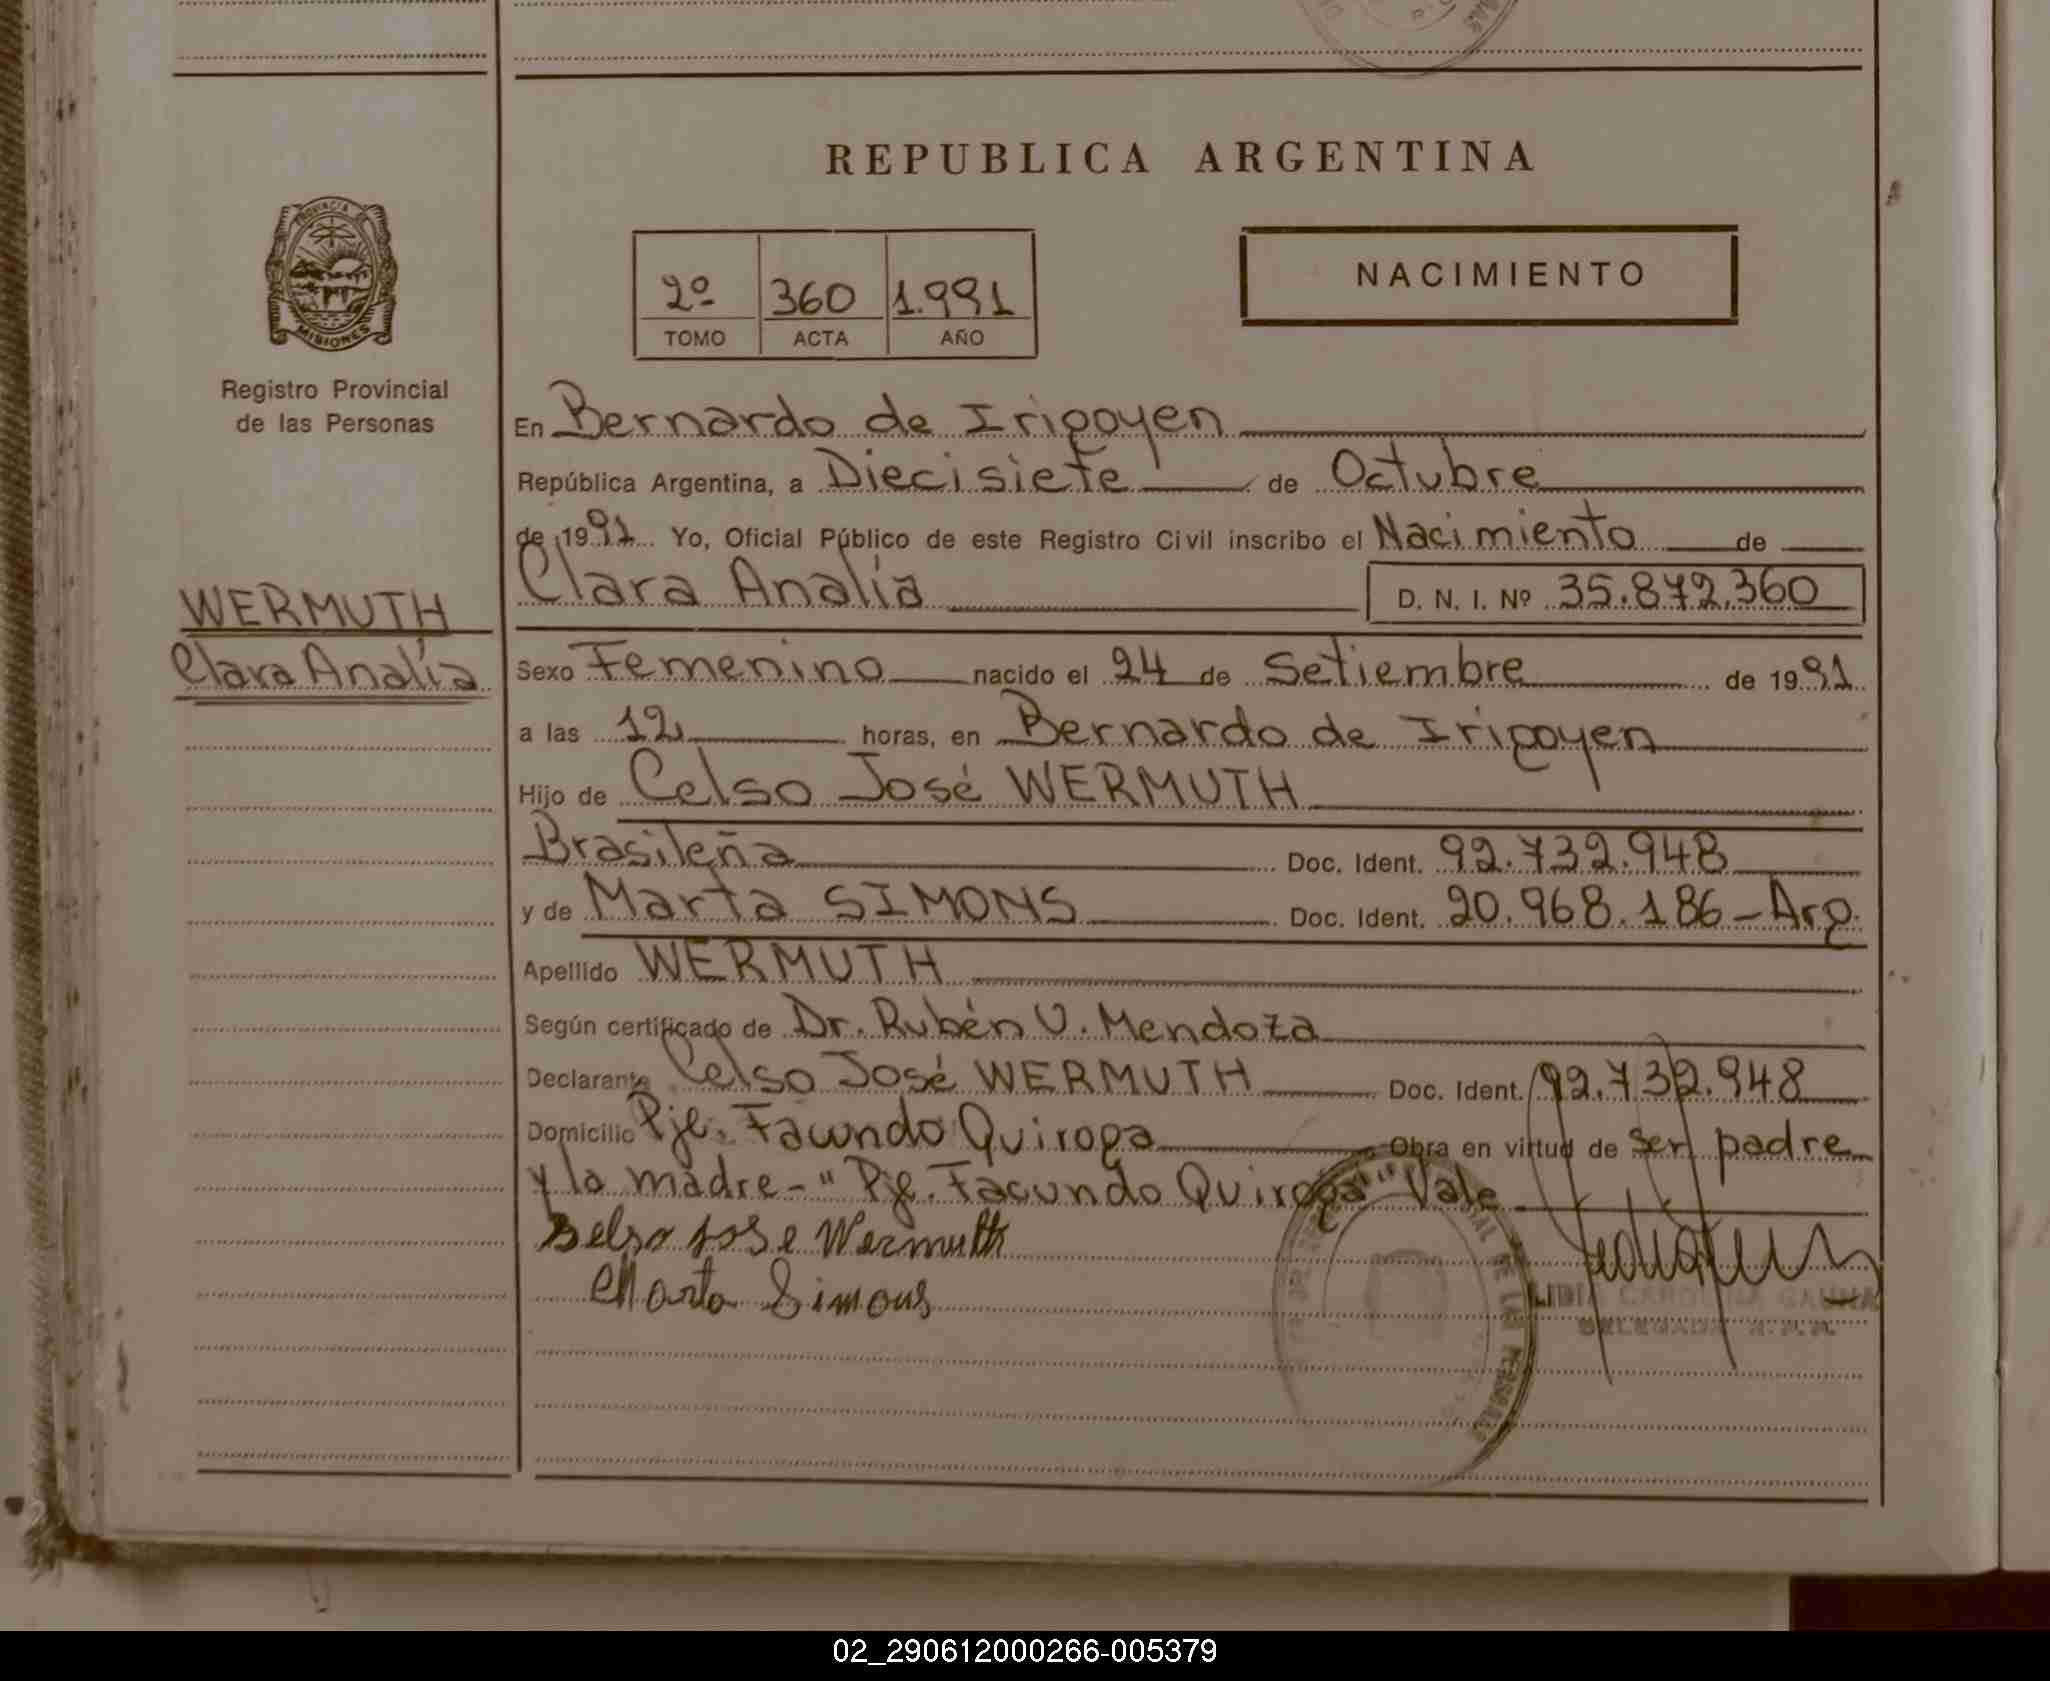 REPUBLICA ARGENTINA
PROVINCIA DE
MISIONES
Registro Provincial
de las Personas
2º 360 1.991
TOMO ACTA AÑO
NACIMIENTO
WERMUTH
Clara Analía
En Bernardo de Irigoyen
República Argentina, a Diecisiete de Octubre
de 1991 Yo, Oficial Público de este Registro Civil inscribo el Nacimiento de
Clara Analía D. N. I. Nº 35.872.360
Sexo Femenino nacido el 24 de Setiembre de 1991
a las 12 horas, en Bernardo de Irigoyen
Hijo de Celso José WERMUTH
Brasileña Doc. Ident. 92.732.948
y de Marta SIMONS Doc. Ident. 20.968.186 - Arg.
Apellido WERMUTH
Según certificado de Dr. Rubén V. Mendoza
Declarante Celso José WERMUTH Doc. Ident. 92.732.948
Domicilio Pje. Facundo Quiroga Obra en virtud de ser padre
y la madre - "Pje. Facundo Quiroga" Vale
Selso Jose Wermuth
Marta Simons
LIDIA CAROLINA GAUNA
DELEGADA R. P. P.
02_290612000266-005379